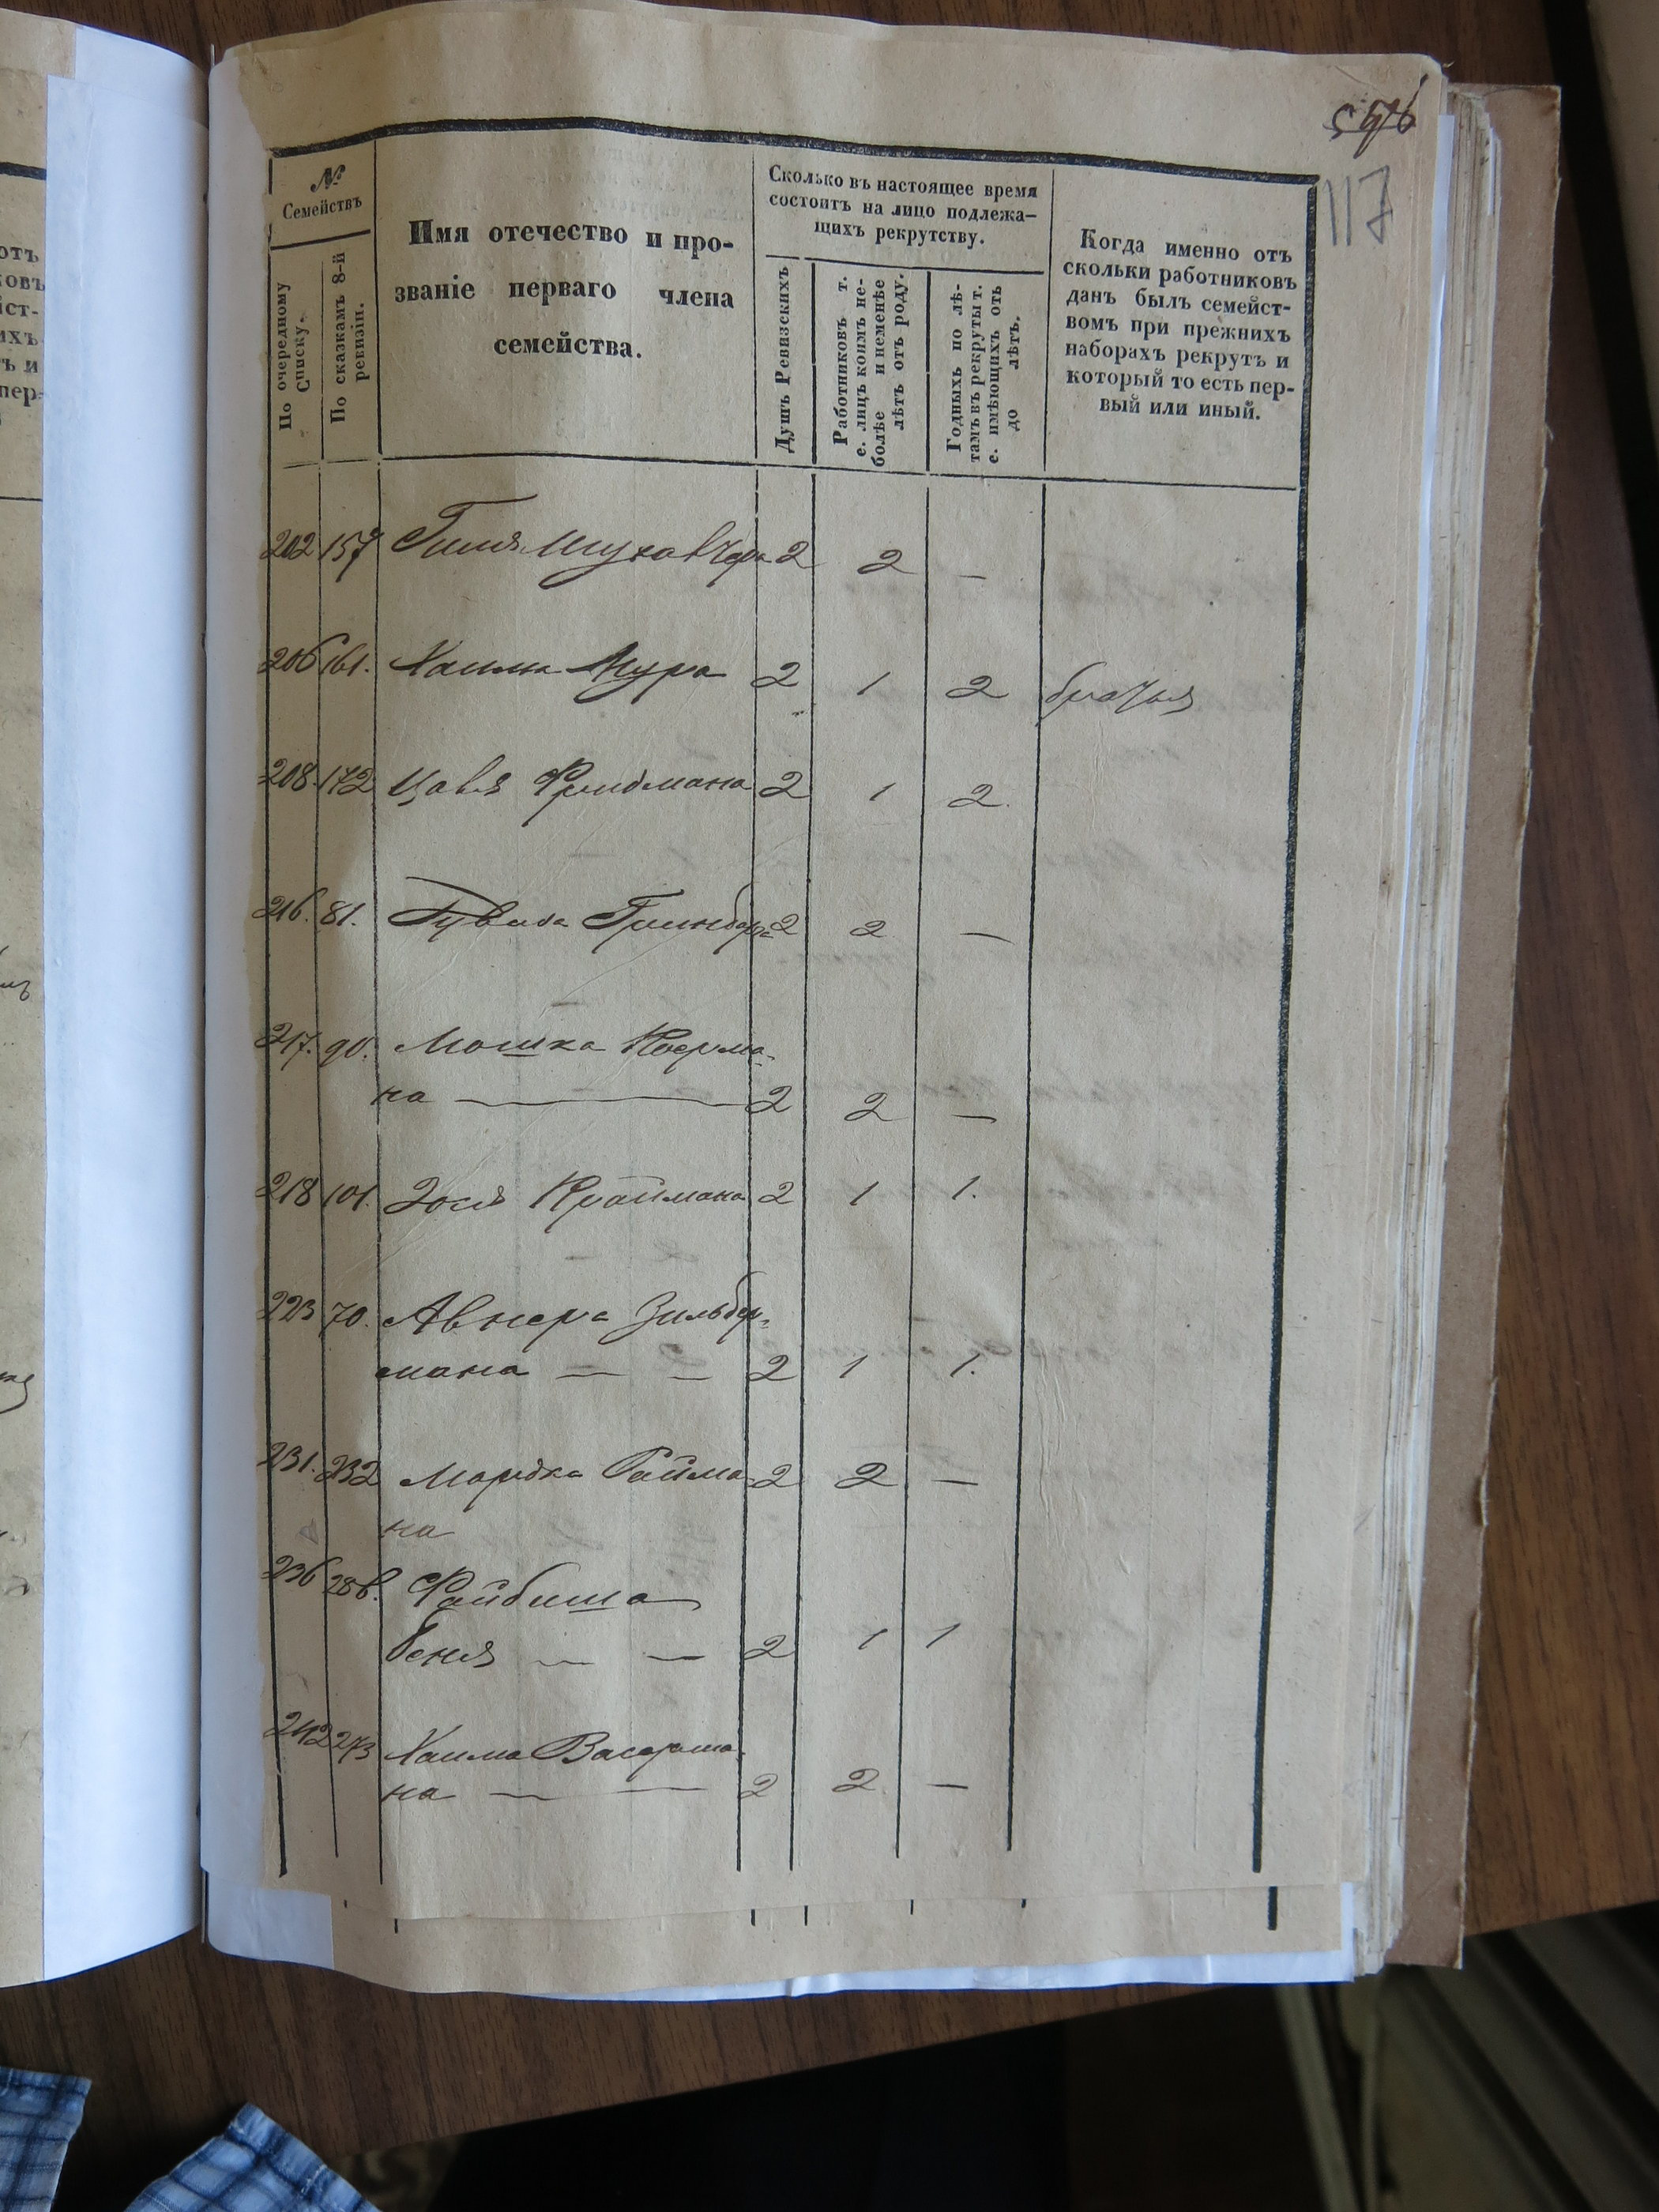 117
№
Семействъ
По очередному
Списку.
По сказкамъ 8-й
ревизіи.
Имя отечество и про-
званіе перваго члена
семейства.
Сколько въ настоящее время
состоитъ на лицо подлежа-
щихъ рекрутству.
Душъ Ревизскихъ
Работниковъ т.
е. лицъ коимъ не-
болѣе и неменѣе
лѣтъ отъ роду.
Годныхъ по лѣ-
тамъ въ рекруты т.
е. имѣющихъ отъ
до лѣтъ.
Когда именно отъ
скольки работниковъ
данъ былъ семейст-
вомъ при прежнихъ
наборахъ рекрутъ и
который то есть пер-
вый или иный.
202 157 2 2 —
206 161. Хаима Мура 2 1 2
208. 172 Фридмана 2 1 2.
216. 81. Гринберга 2 2 —
217. 90. Мошка Коерма-
на — 2 2 —
218 101. Зося Краймана 2 1 1.
223 70. Авнера Зильбер-
мана — — 2 1 1.
231. 232 Мордка Райма- 2 2 —
на
236 288. Файбиша
Беня — — 2 1 1
242 273 Хаима Васерма-
на — — 2 2 —